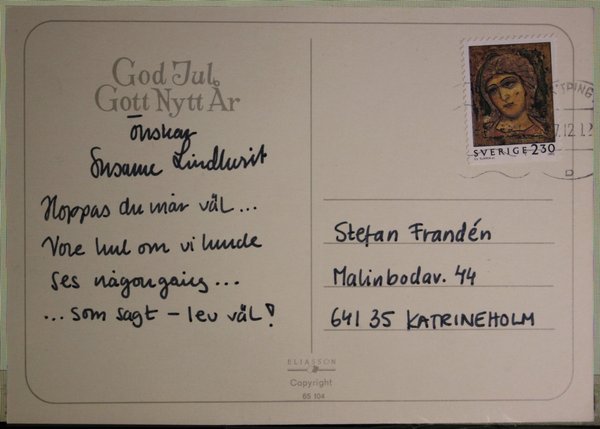 God Jul,
Gott Nytt År
Önskar
Susanne Lindkvist
Hoppas du mår väl...
Vore kul om vi kunde
ses någongång...
...som sagt - lev väl!
SVERIGE 230
Stefan Frandén
Malinbodav. 44
641 35 KATRINEHOLM
ELIASSON
Copyright
65 104